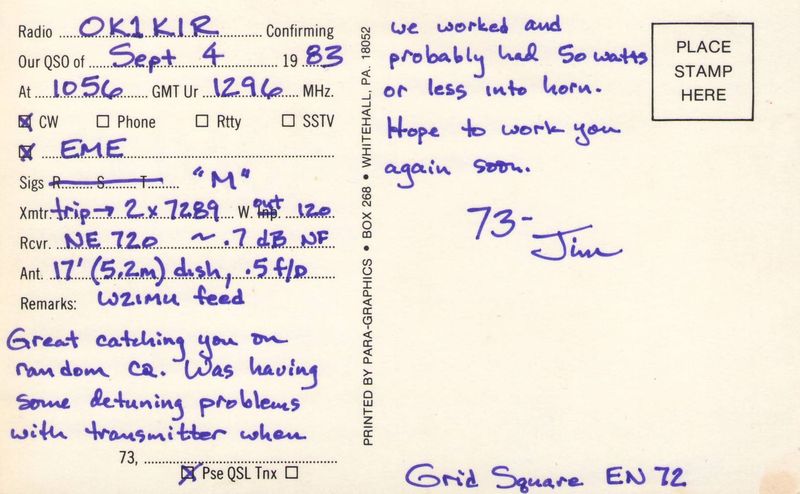 Radio OK1KIR Confirming
Our QSO of Sept 4 1983
At 1056 GMT Ur 1296 MHz.
☒ CW ☐ Phone ☐ Rtty ☐ SSTV
☒ EME
Sigs R S T "M"
Xmtr trip→ 2 x 7289 W. Inp. out 120
Rcvr. NE 720 ~ .7 dB NF
Ant. 17' (5.2m) dish, .5 f/D
Remarks: W2IMU feed
Great catching you on
random CQ. Was having
some detuning problems
with transmitter when
73,
☒ Pse QSL Tnx ☐
PRINTED BY PARA-GRAPHICS • BOX 268 • WHITEHALL, PA. 18052
we worked and
probably had 50 watts
or less into horn.
Hope to work you
again soon.
73-
Jim
PLACE
STAMP
HERE
Grid Square EN 72